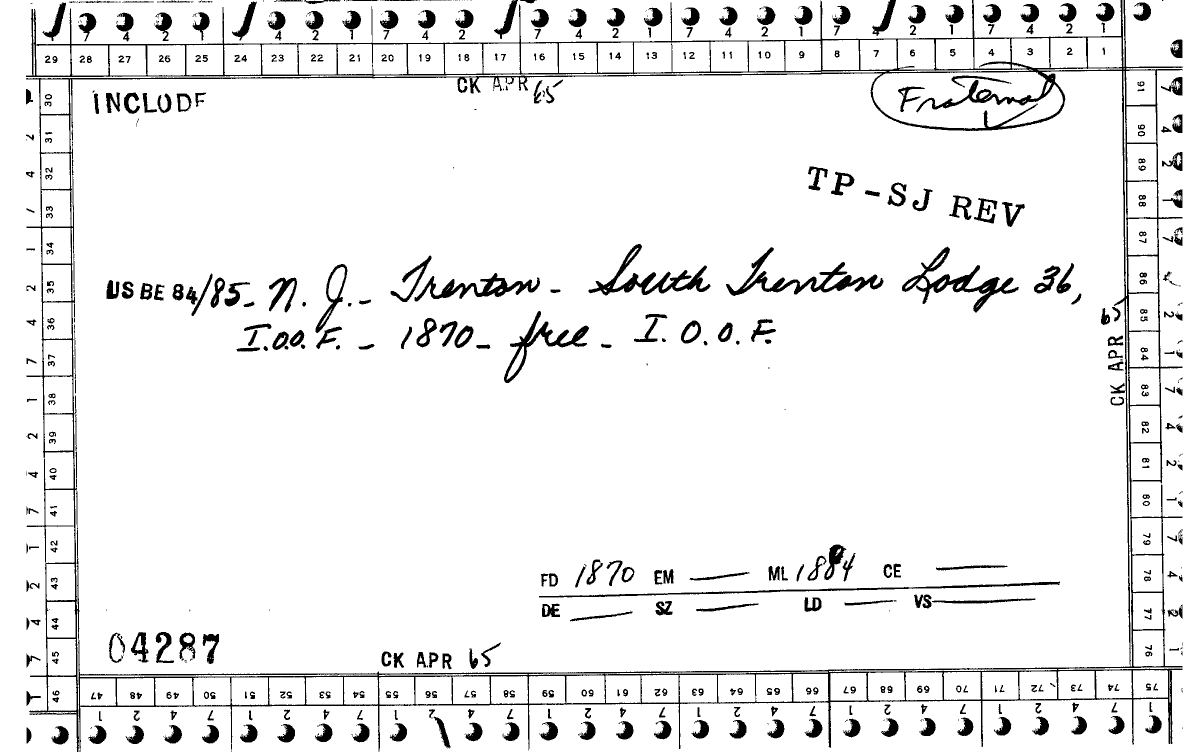 29 28 27 26 25 24 23 22 21 20 19 18 17 16 15 14 13 12 11 10 9 8 7 6 5 4 3 2 1
INCLUDE
CK APR 65
Fraternal
TP-SJ REV
US BE 84/85- N. J.- Trenton- South Trenton Lodge 36,
I.O.O.F. - 1870- free- I.O.O.F.
CK APR 65
FD 1870 EM ML 1884 CE
DE SZ LD VS
04287
CK APR 65
30 31 32 33 34 35 36 37 38 39 40 41 42 43 44 45 46
91 90 89 88 87 86 85 84 83 82 81 80 79 78 77 76
47 48 49 50 51 52 53 54 55 56 57 58 59 60 61 62 63 64 65 66 67 68 69 70 71 72 73 74 75